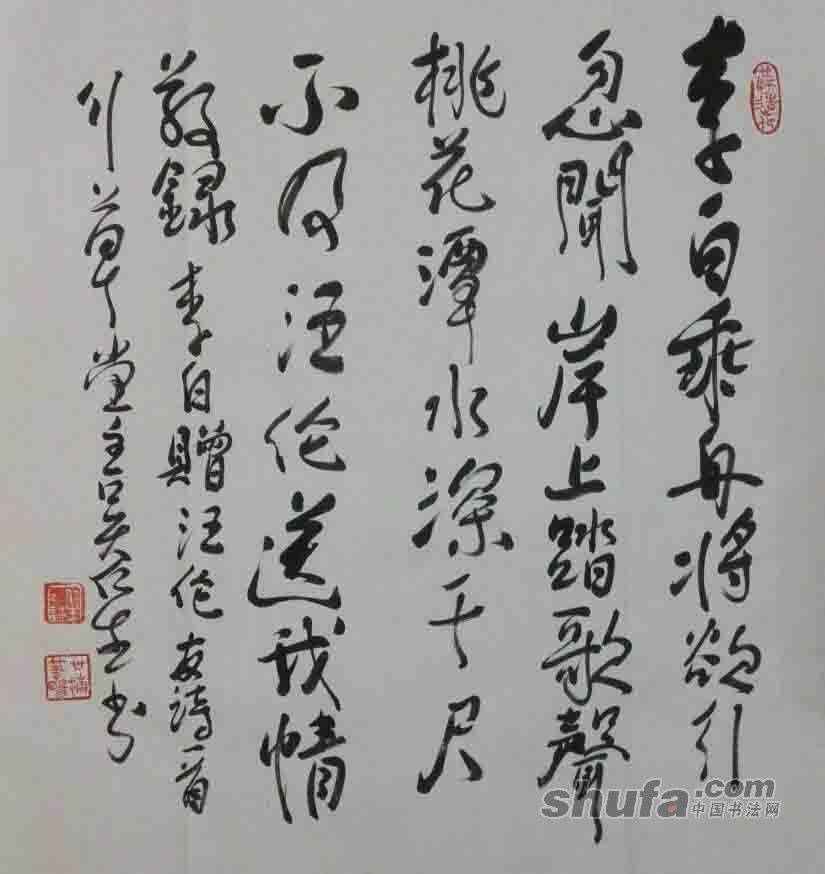 李白乘舟将欲行
忽聞岸上踏歌聲
桃花潭水深千尺
不及汪伦送我情
敬録李白贈汪伦友詩一首
草堂主吴生书
shufa.com
中国书法网